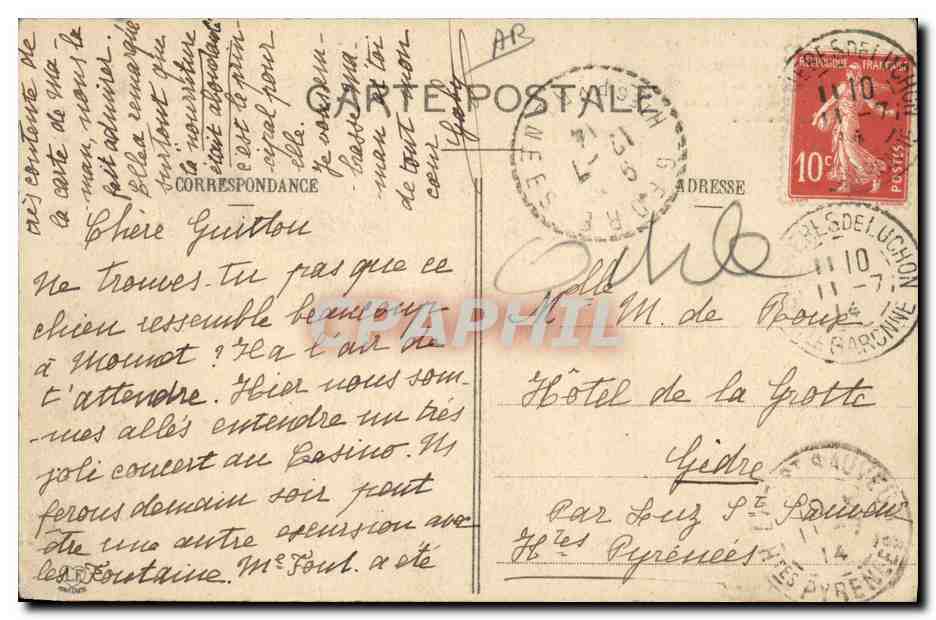 CARTE POSTALE
CORRESPONDANCE
ADRESSE
Chère Guitlou
Ne trouves-tu pas que ce
chien ressemble beaucoup
à Moumot ? Il a l'air de
t'attendre. Hier nous som-
-mes allés entendre un très
joli concert au Casino. N
ferons demain soir peut
être une autre excursion avec
les Fontaine. Me Foul. a été
très contente de
la carte de ma-
man, nous l'a
fait admirer.
Elle a remarqué
surtout que
la nourriture
était abondante
c'est le prin-
cipal pour
elle.
Je vous em-
brasse ma-
man et toi
de tout mon
coeur
Gaby
AR
Melle M. de Rouz
Hôtel de la Grotte
Gèdre
Par Luz St Sauveur
Htes Pyrénées
REPUBLIQUE FRANÇAISE
10c
POSTES
BAGNERES DE LUCHON
11 10
11 -7
14
BAGNERES DE LUCHON
11 10
11 -7
14
HTE GARONNE
GEDRE
LUZ ST SAUVEUR
14
HTES PYRENEES
CPAPHIL